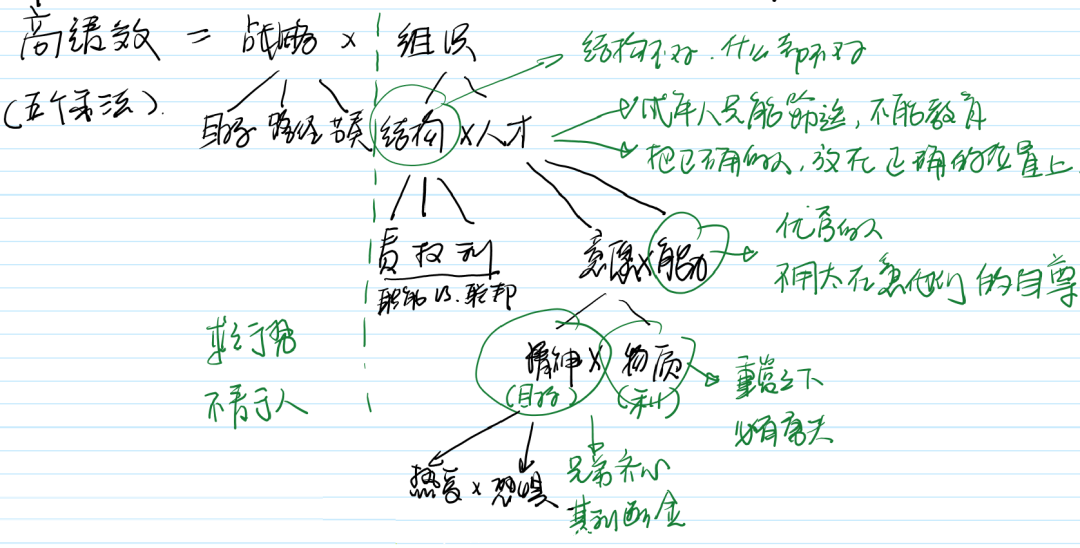 高绩效 = 战略 × 组织
(五个乘法).
目标 路径 节奏 结构 × 人才
结构不对.什么都不对
成年人只能筛选,不能教育
把正确的人,放在正确的位置上.
责 权 利
职能 VS. 联邦
意愿×能力
优秀的人
不用太在意他们的自尊
求之于势
不责于人
精神 × 物质
(目标) (利)
重赏之下
必有勇夫
热爱 × 恐惧
兄弟齐心
其利断金